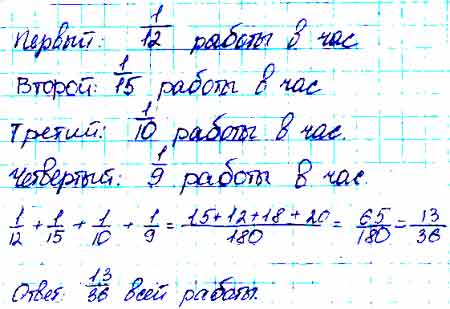 Первый: 1/12 работы в час
Второй: 1/15 работы в час
Третий: 1/10 работы в час.
Четвертый: 1/9 работы в час.
1/12 + 1/15 + 1/10 + 1/9 = 15+12+18+20/180 = 65/180 = 13/36
Ответ: 13/36 всей работы.